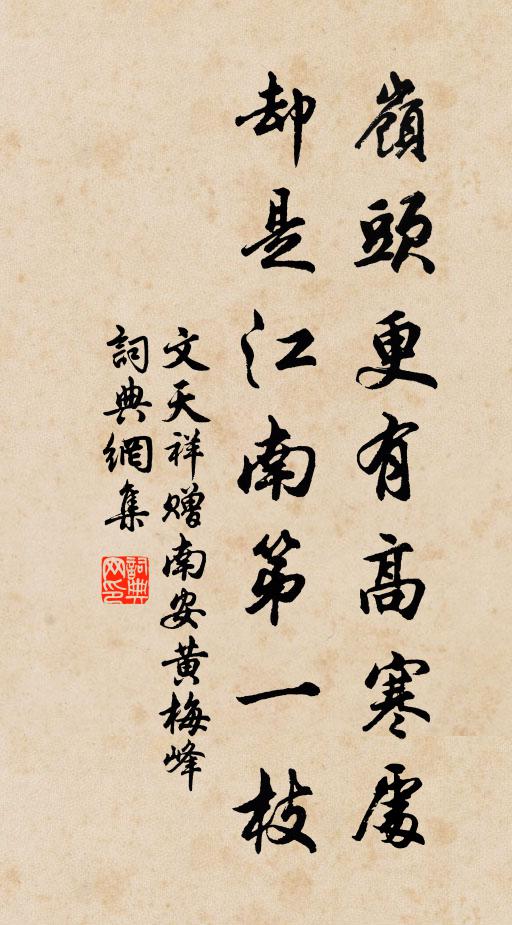 嶺頭更有高寒處
却是江南第一枝
文天祥赠南安黄梅峰
詞典網集
詞典网印